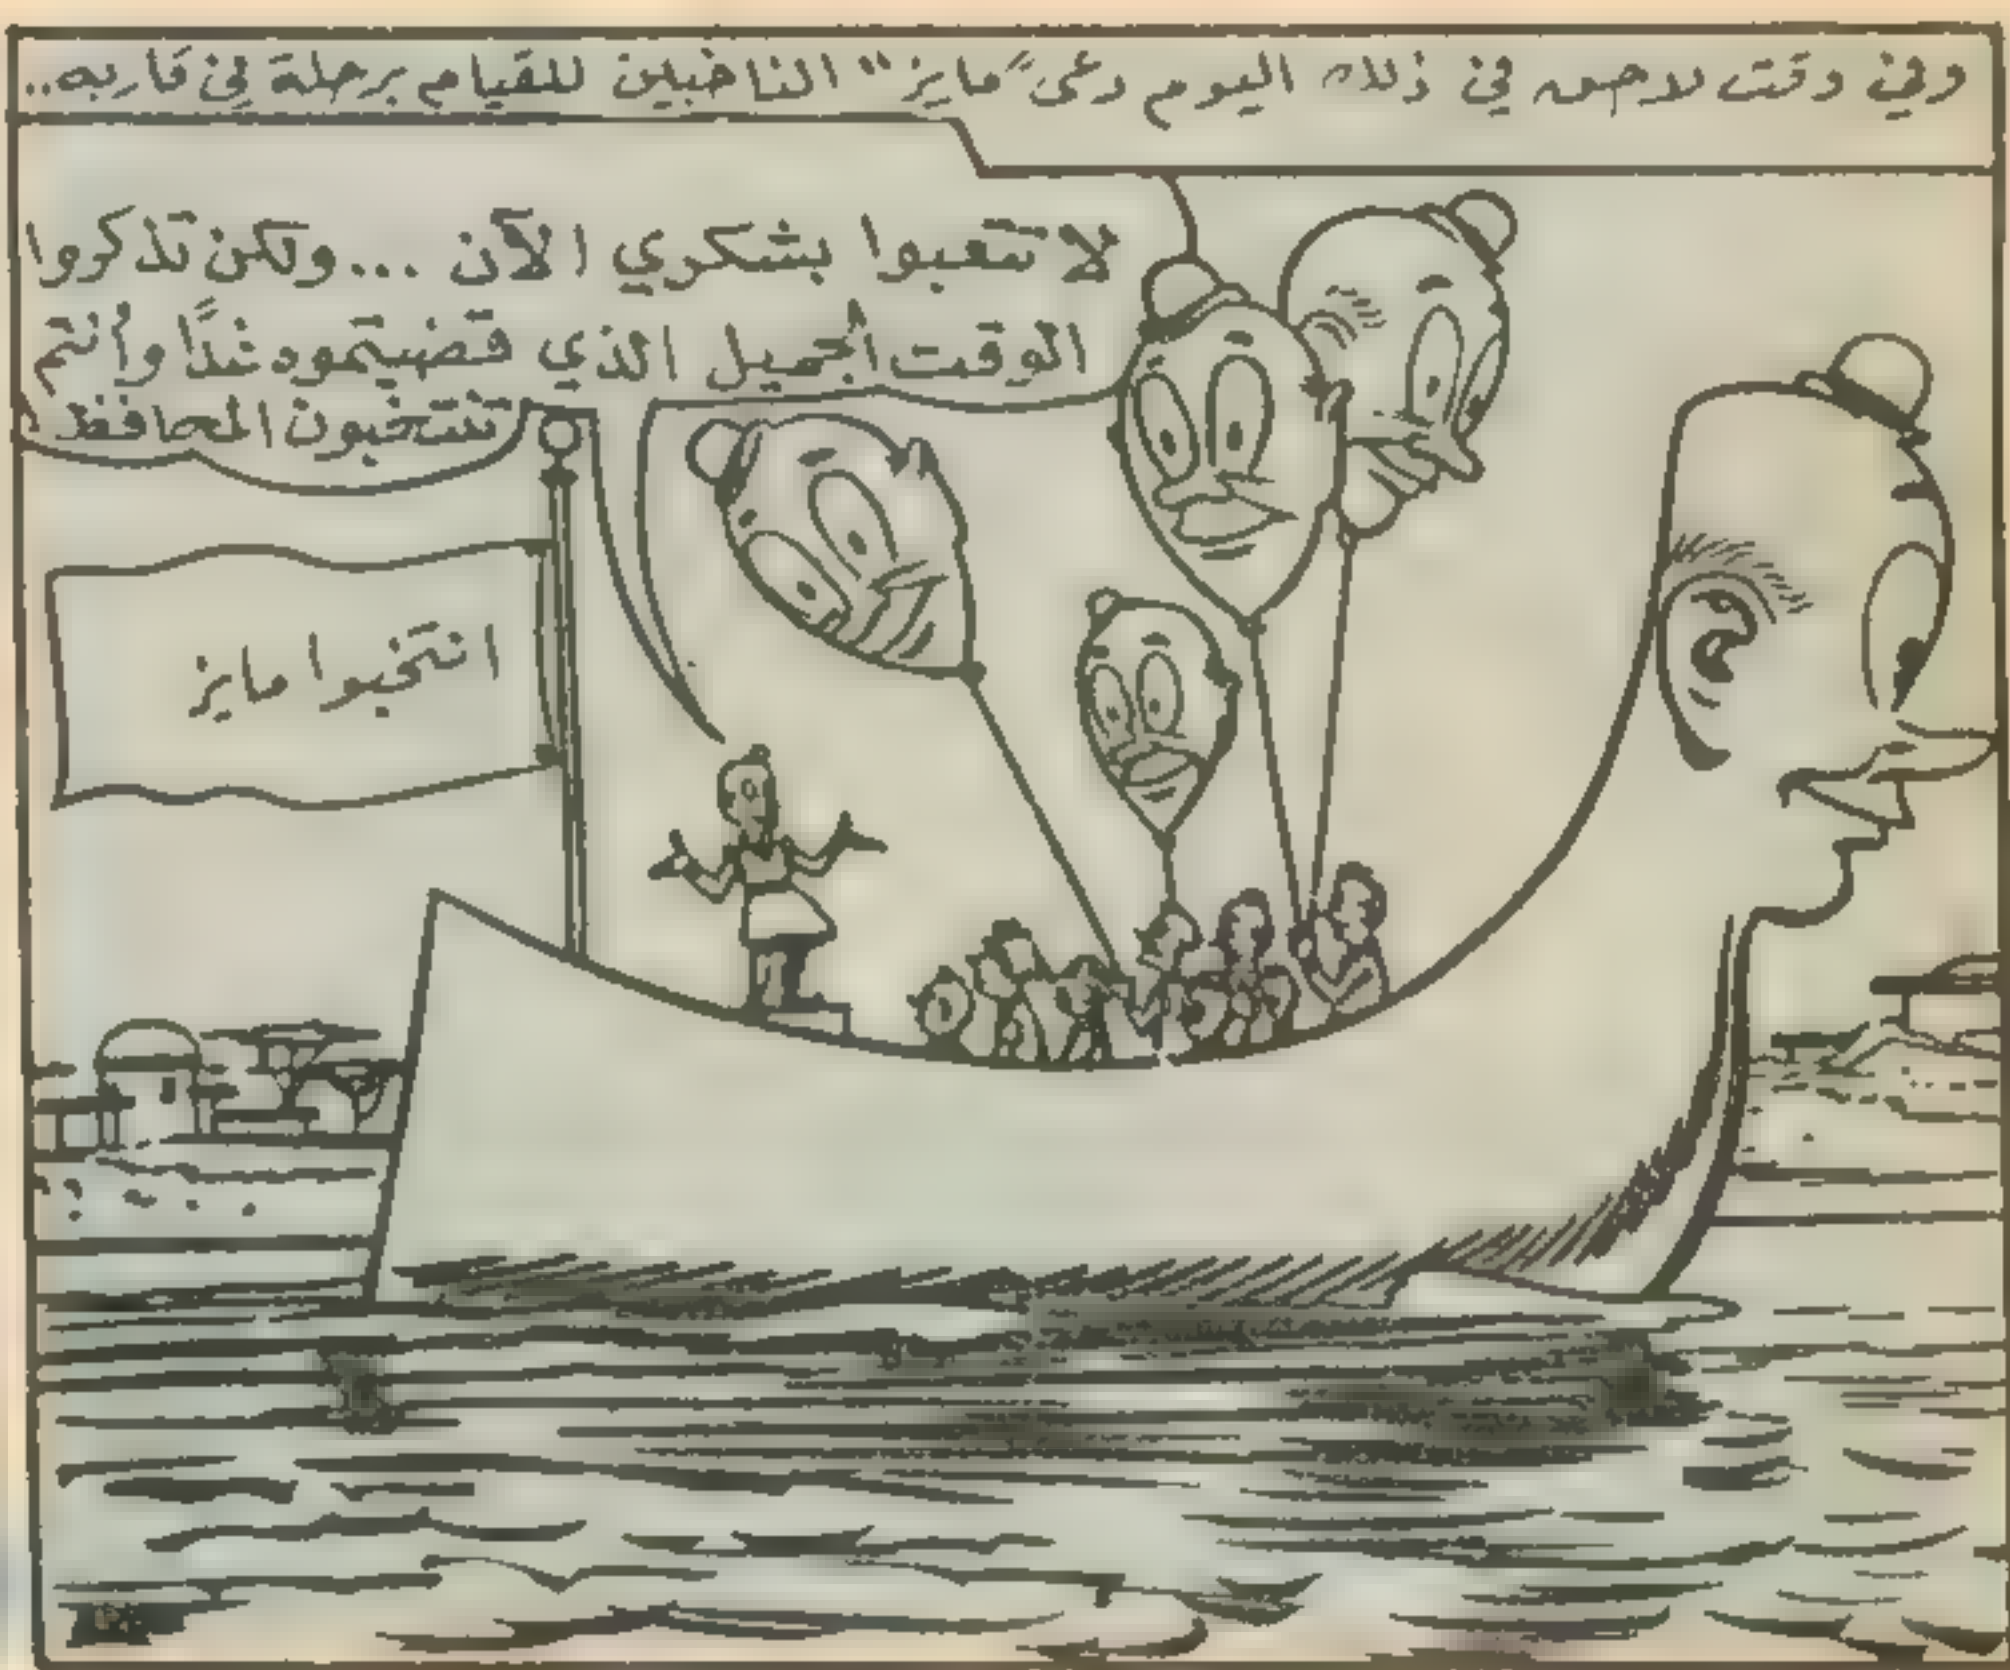 وفي وقت لاحق في ذلك اليوم دعى "مايز" الناخبين للقيام برحلة في قاربه..
لا تتعبوا بشكري الآن ... ولكن تذكروا
الوقت الجميل الذي قضيتموه غدًا وأنتم
تنتخبون المحافظ
انتخبوا مايز